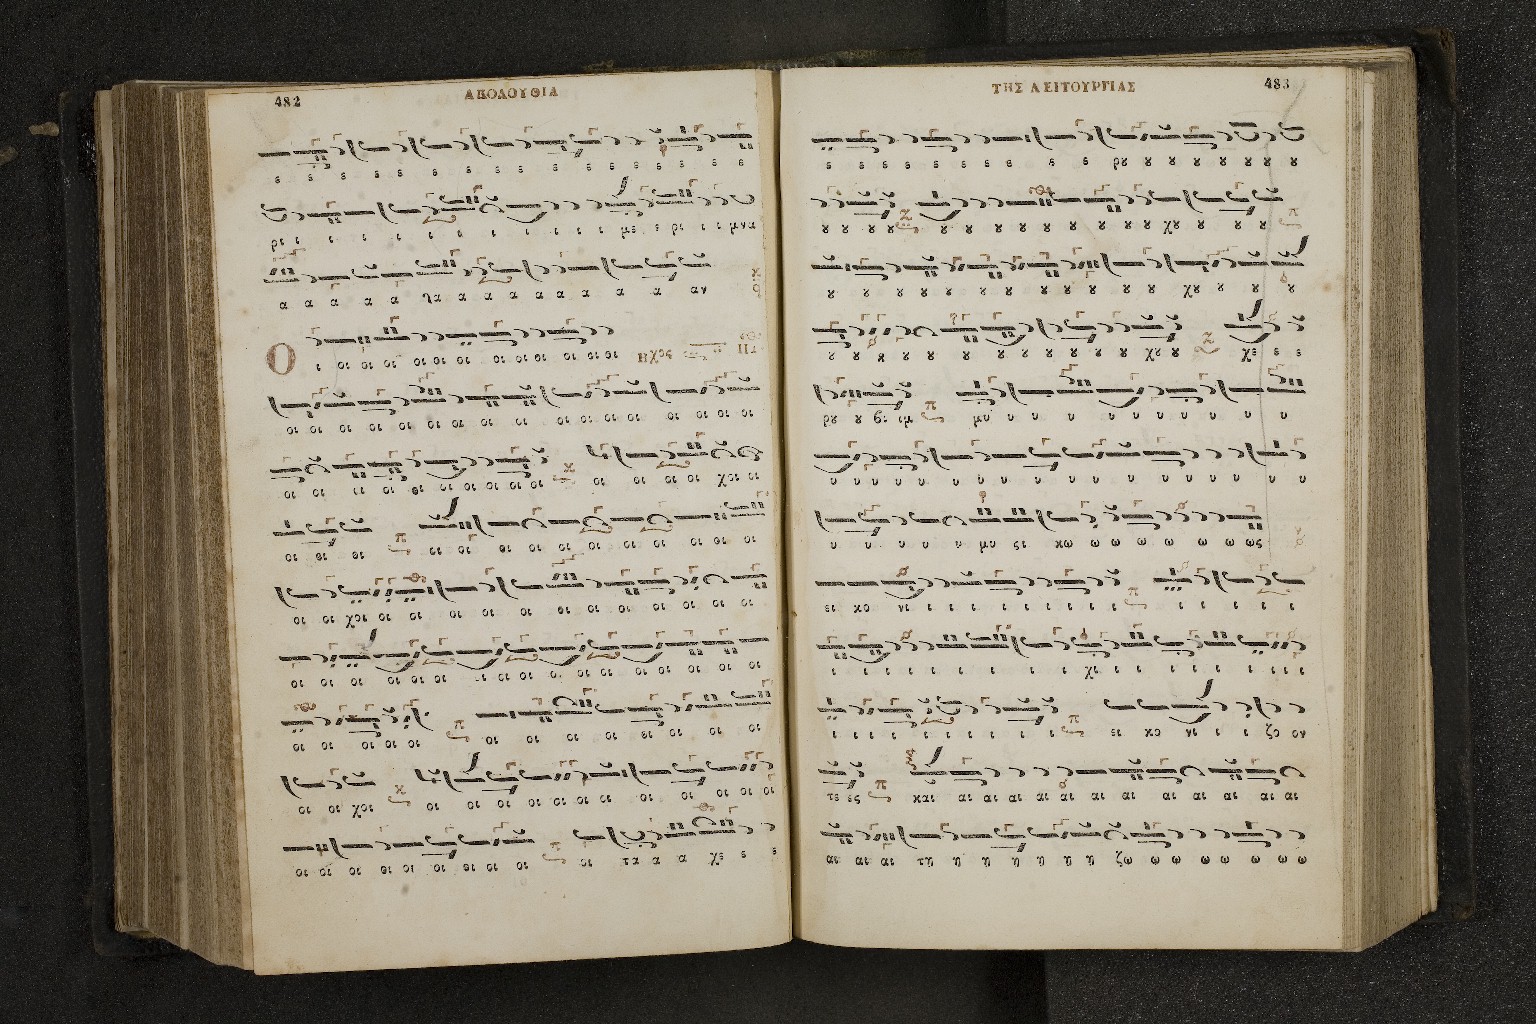 482 ΑΚΟΛΟΥΘΙΑ
ε ε ε ε ε ε ε ε ε ε ε ε ε ε ε
ρι ι ι ι ι ι ι ι ι ι ι ι με ε ρι ι ι μνα
α α α α α γα α α α α α α α α α αν
Ο ι οι οι οι οι οι οι οι οι οι οι οι Ηχος
οι οι οι οι οι οι οι οι οι οι οι οι οι οι οι οι
οι οι οι οι οι οι οι οι οι οι οι οι χοι οι
οι οι οι οι οι οι οι οι οι οι οι οι
οι οι χοι οι οι οι οι οι οι οι οι οι
οι οι οι οι οι οι οι οι οι οι οι οι οι οι
οι οι οι οι οι οι οι οι οι οι οι οι
οι οι χοι οι οι οι οι οι οι οι οι οι οι οι
οι οι οι οι οι οι οι οι οι οι τα α α χε ε ε
ΤΗΣ ΛΕΙΤΟΥΡΓΙΑΣ 483
ε ε ε ε ε ε ε ε ε ε ρȣ ȣ ȣ ȣ ȣ ȣ ȣ ȣ
ȣ ȣ ȣ ȣ ȣ ȣ ȣ ȣ ȣ ȣ ȣ ȣ χȣ ȣ ȣ ȣ
ȣ ȣ ȣ ȣ ȣ ȣ ȣ ȣ ȣ ȣ ȣ ȣ ȣ χȣ ȣ ȣ ȣ
ȣ ȣ ȣ ȣ ȣ ȣ ȣ ȣ ȣ ȣ ȣ ȣ χȣ ȣ χε ε ε
ρȣ ȣ βι ιμ μυ υ υ υ υ υ υ υ υ υ υ
υ υ υ υ υ υ υ υ υ υ υ υ υ υ υ υ υ
υ υ υ υ υ μυ ςι κω ω ω ω ω ω ω ως
ει κο νι ι ι ι ι ι ι ι ι ι ι ι ι ι ι
ι ι ι ι ι ι ι ι χι ι ι ι ι ι ι ι
ι ι ι ι ι ι ι ι ι ι ει κο νι ι ι ζο ον
τε ες και αι αι αι αι αι αι αι αι αι αι αι αι
αι αι αι τη η η η η η η ζω ω ω ω ω ω ω ω